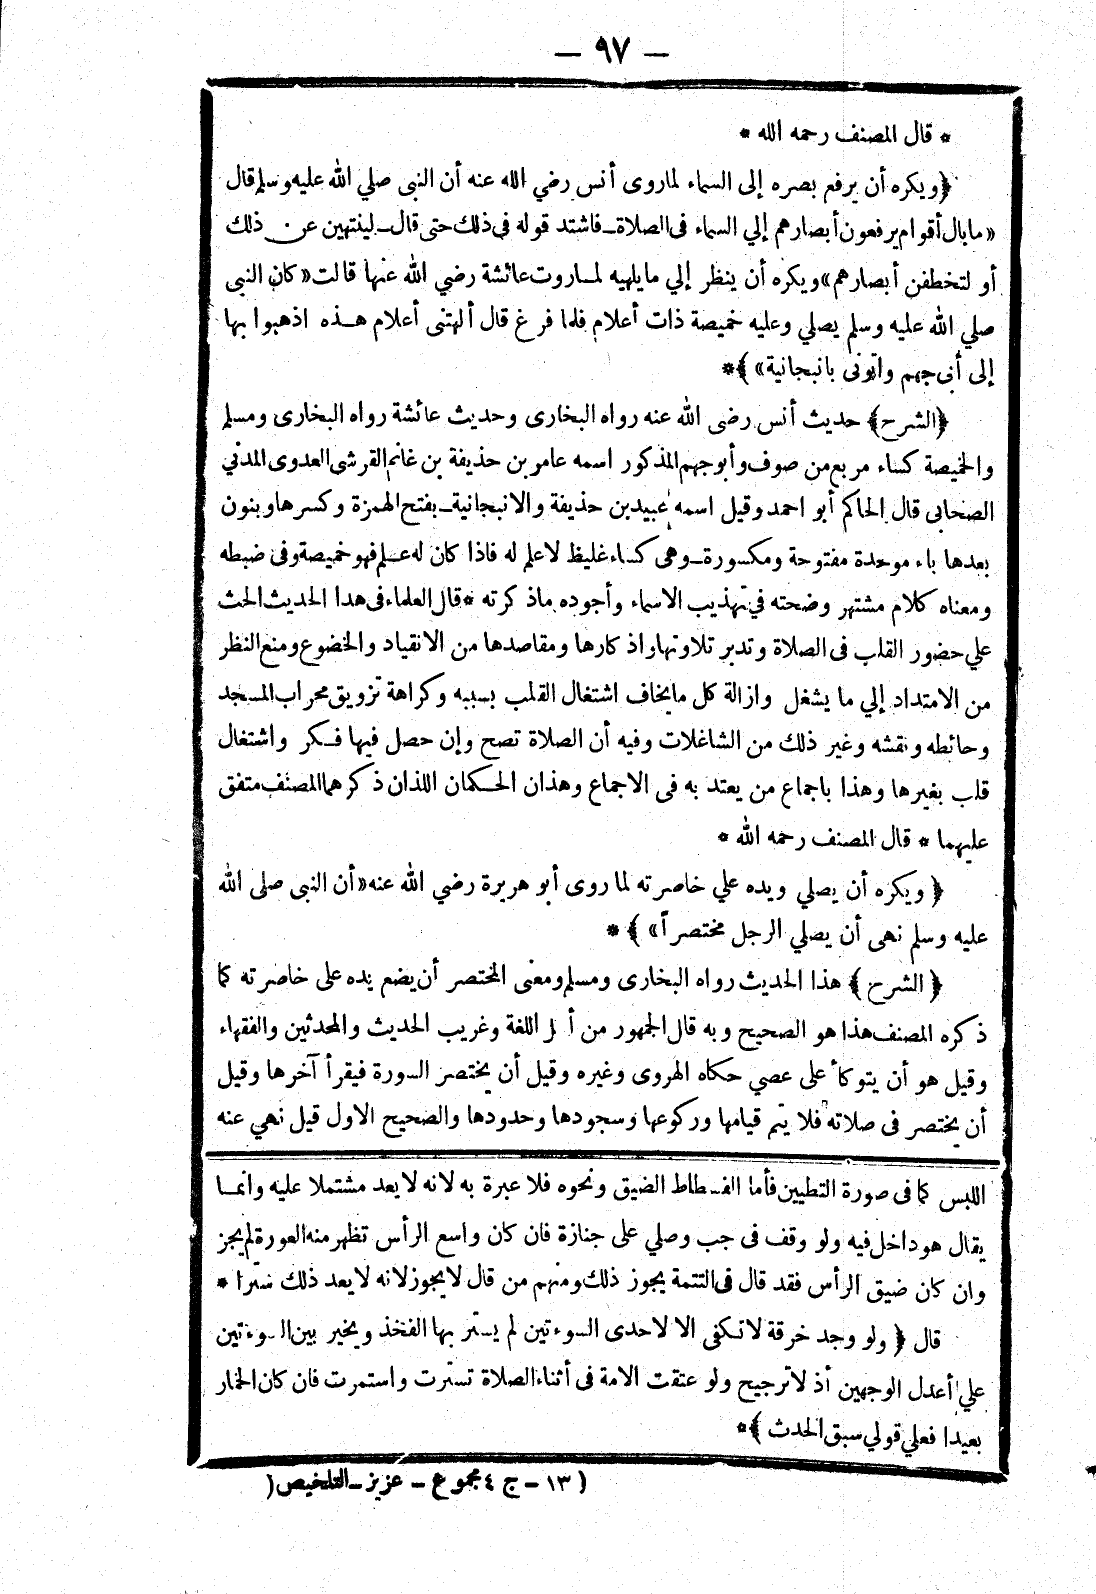 — ٩٧ —
* قال المصنف رحمه الله *
﴿ ويكره أن يرفع بصره إلى السماء لما روى أنس رضي الله عنه أن النبى صلي الله عليه وسلم قال
« ما بال أقوام يرفعون أبصارهم إلي السماء فى الصلاة ـ فاشتد قوله فى ذلك حتى قال ـ لينتهين عن ذلك
أو لتخطفن أبصارهم » ويكره أن ينظر إلي ما يلهيه لما روت عائشة رضي الله عنها قالت « كان النبى
صلي الله عليه وسلم يصلي وعليه خميصة ذات أعلام فلما فرغ قال ألهتنى أعلام هذه اذهبوا بها
إلى أبى جهم واتونى بانبجانية » ﴾ *
﴿ الشرح ﴾ حديث أنس رضى الله عنه رواه البخارى وحديث عائشة رواه البخارى ومسلم
والخميصة كساء مربع من صوف وأبو جهم المذكور اسمه عامر بن حذيفة بن غانم القرشى العدوى المدني
الصحابى قال الحاكم أبو احمد وقيل اسمه عبيد بن حذيفة والانبجانية ـ بفتح الهمزة وكسرها وبنون
بعدها باء موحدة مفتوحة ومكسورة ـ وهى كساء غليظ لا علم له فاذا كان له علم فهو خميصة وفى ضبطه
ومعناه كلام مشتهر وضحته في تهذيب الاسماء وأجوده ما ذكرته * قال العلماء فى هذا الحديث الحث
علي حضور القلب فى الصلاة وتدبر تلاوتها واذكارها ومقاصدها من الانقياد والخضوع ومنع النظر
من الامتداد إلي ما يشغل وازالة كل ما يخاف اشتغال القلب بسببه وكراهة تزويق محراب المسجد
وحائطه ونقشه وغير ذلك من الشاغلات وفيه أن الصلاة تصح وإن حصل فيها فكر واشتغال
قلب بغيرها وهذا باجماع من يعتد به فى الاجماع وهذان الحكمان اللذان ذكرهما المصنف متفق
عليهما * قال المصنف رحمه الله *
﴿ ويكره أن يصلي ويده علي خاصرته لما روى أبو هريرة رضي الله عنه « أن النبى صلى الله
عليه وسلم نهى أن يصلي الرجل مختصراً » ﴾ *
﴿ الشرح ﴾ هذا الحديث رواه البخارى ومسلم ومعنى المختصر أن يضع يده على خاصرته كما
ذكره المصنف هذا هو الصحيح وبه قال الجمهور من اللغة وغريب الحديث والمحدثين والفقهاء
وقيل هو أن يتوكأ على عصي حكاه الهروى وغيره وقيل أن يختصر السورة فيقرأ آخرها وقيل
أن يختصر فى صلاته فلا يتم قيامها وركوعها وسجودها وحدودها والصحيح الاول قيل نهي عنه
اللبس كما فى صورة التطيين فأما الفسطاط الضيق ونحوه فلا عبرة به لانه لا يعد مشتملا عليه وانما
يقال هو داخل فيه ولو وقف فى جب وصلي على جنازة فان كان واسع الرأس تظهر منه العورة لم يجز
وان كان ضيق الرأس فقد قال فى التتمة يجوز ذلك ومنهم من قال لا يجوز لانه لا يعد ذلك سترا *
قال ﴿ ولو وجد خرقة لا تكفى الا لاحدى السوءتين لم يستر بها الفخذ ويخير بين السوءتين
علي أعدل الوجهين أذ لا ترجيح ولو عتقت الامة فى أثناء الصلاة تسترت واستمرت فان كان الخمار
بعيدا فعلي قولي سبق الحدث ﴾ *
( ١٣ – ج ٤ مجموع – عزيز ـ التلخيص (